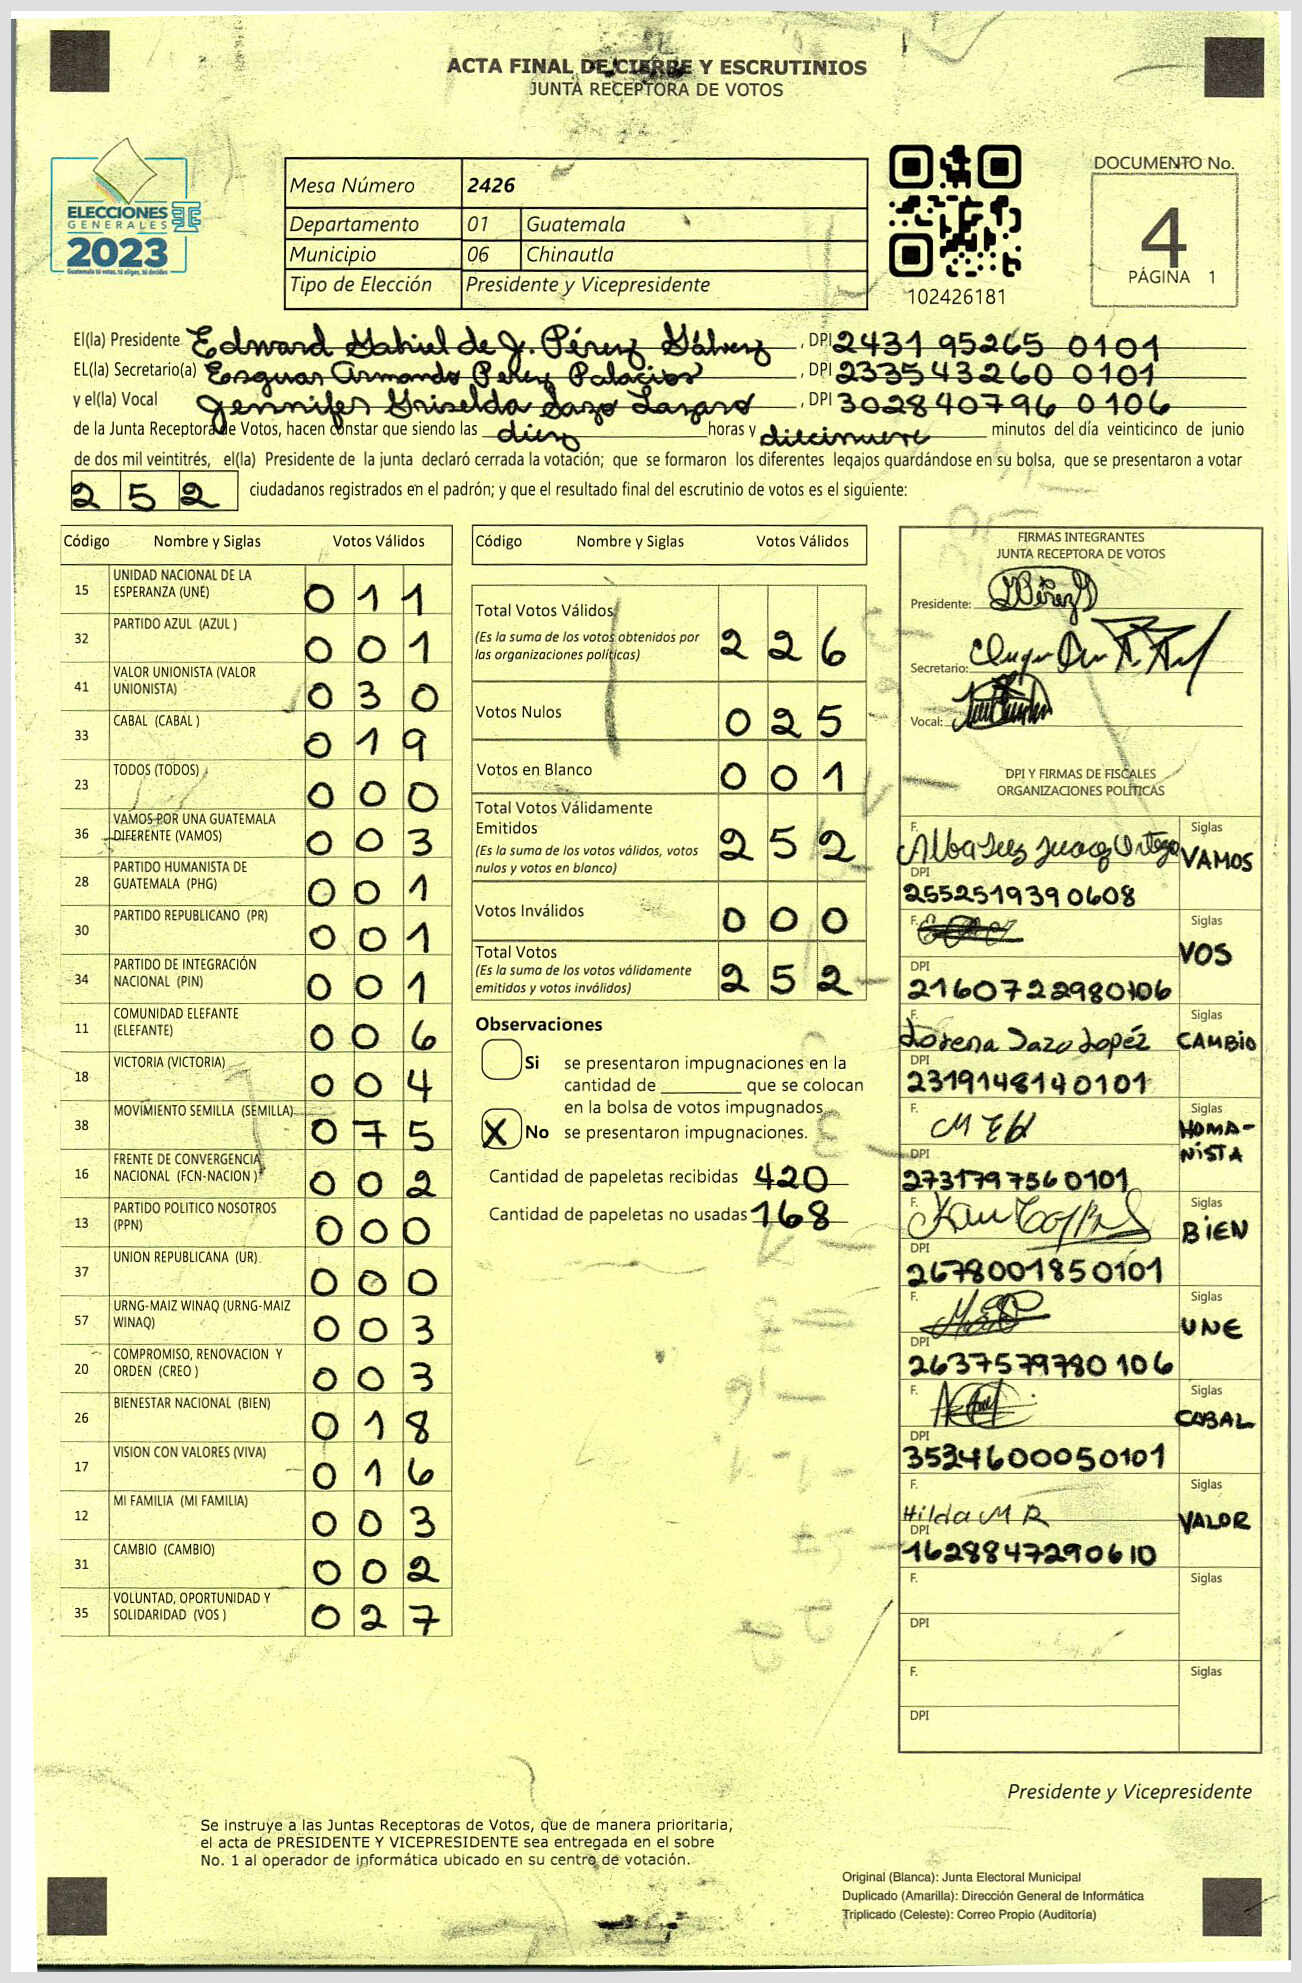 ACTA FINAL DE CIERRE Y ESCRUTINIOS
JUNTA RECEPTORA DE VOTOS
ELECCIONES
GENERALES
2023
Guatemala tú votas, tú eliges, tú decides
Mesa Número 2426
Departamento 01 Guatemala
Municipio 06 Chinautla
Tipo de Elección Presidente y Vicepresidente
102426181
DOCUMENTO No.
4
PÁGINA 1
El(la) Presidente Edward Gabriel de J. Pérez Gálvez, DPI 2431 95265 0101
EL(la) Secretario(a) Armando Perez Palacios, DPI 233543260 0101
y el(la) Vocal Jennifer Griselda Lazo Lazaro, DPI 302840796 0106
de la Junta Receptora de Votos, hacen constar que siendo las diez horas y diecinueve minutos del día veinticinco de junio
de dos mil veintitrés, el(la) Presidente de la junta declaró cerrada la votación; que se formaron los diferentes legajos guardándose en su bolsa, que se presentaron a votar
252 ciudadanos registrados en el padrón; y que el resultado final del escrutinio de votos es el siguiente:
Código Nombre y Siglas Votos Válidos
15 UNIDAD NACIONAL DE LA ESPERANZA (UNE) 011
32 PARTIDO AZUL (AZUL ) 001
41 VALOR UNIONISTA (VALOR UNIONISTA) 030
33 CABAL (CABAL ) 019
23 TODOS (TODOS) 000
36 VAMOS POR UNA GUATEMALA DIFERENTE (VAMOS) 003
28 PARTIDO HUMANISTA DE GUATEMALA (PHG) 001
30 PARTIDO REPUBLICANO (PR) 001
34 PARTIDO DE INTEGRACIÓN NACIONAL (PIN) 001
11 COMUNIDAD ELEFANTE (ELEFANTE) 006
18 VICTORIA (VICTORIA) 004
38 MOVIMIENTO SEMILLA (SEMILLA) 075
16 FRENTE DE CONVERGENCIA NACIONAL (FCN-NACION ) 002
13 PARTIDO POLITICO NOSOTROS (PPN) 000
37 UNION REPUBLICANA (UR) 000
57 URNG-MAIZ WINAQ (URNG-MAIZ WINAQ) 003
20 COMPROMISO, RENOVACION Y ORDEN (CREO ) 003
26 BIENESTAR NACIONAL (BIEN) 018
17 VISION CON VALORES (VIVA) 016
12 MI FAMILIA (MI FAMILIA) 003
31 CAMBIO (CAMBIO) 002
35 VOLUNTAD, OPORTUNIDAD Y SOLIDARIDAD (VOS ) 027
Código Nombre y Siglas Votos Válidos
Total Votos Válidos 226
(Es la suma de los votos obtenidos por
las organizaciones políticas)
Votos Nulos 025
Votos en Blanco 001
Total Votos Válidamente
Emitidos 252
(Es la suma de los votos válidos, votos
nulos y votos en blanco)
Votos Inválidos 000
Total Votos 252
(Es la suma de los votos válidamente
emitidos y votos inválidos)
Observaciones
Si se presentaron impugnaciones en la
cantidad de ________ que se colocan
en la bolsa de votos impugnados
X No se presentaron impugnaciones.
Cantidad de papeletas recibidas 420
Cantidad de papeletas no usadas 168
FIRMAS INTEGRANTES
JUNTA RECEPTORA DE VOTOS
Presidente:
Secretario:
Vocal:
DPI Y FIRMAS DE FISCALES
ORGANIZACIONES POLÍTICAS
F. Siglas
VAMOS
DPI
2552519390608
F. Siglas
VOS
DPI
2160722980106
F. Lorena Lazo Lopéz Siglas
CAMBiO
DPI
2319148140101
F. Siglas
HOMA-
NiSTA
DPI
2731797560101
F. Siglas
BiEN
DPI
2678001850101
F. Siglas
UNE
DPI
2637579780106
F. Siglas
CABAL
DPI
3524600050101
F. Hilda M R Siglas
VALOR
DPI
1628847290610
F. Siglas
DPI
F. Siglas
DPI
Presidente y Vicepresidente
Se instruye a las Juntas Receptoras de Votos, que de manera prioritaria,
el acta de PRESIDENTE Y VICEPRESIDENTE sea entregada en el sobre
No. 1 al operador de informática ubicado en su centro de votación.
Original (Blanca): Junta Electoral Municipal
Duplicado (Amarilla): Dirección General de Informática
Triplicado (Celeste): Correo Propio (Auditoría)